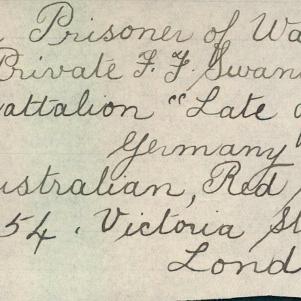 Prisoner of Wa
Private F. F. Swan
attalion "Late
Germany"
ustralian, Red
54. Victoria St
Lond